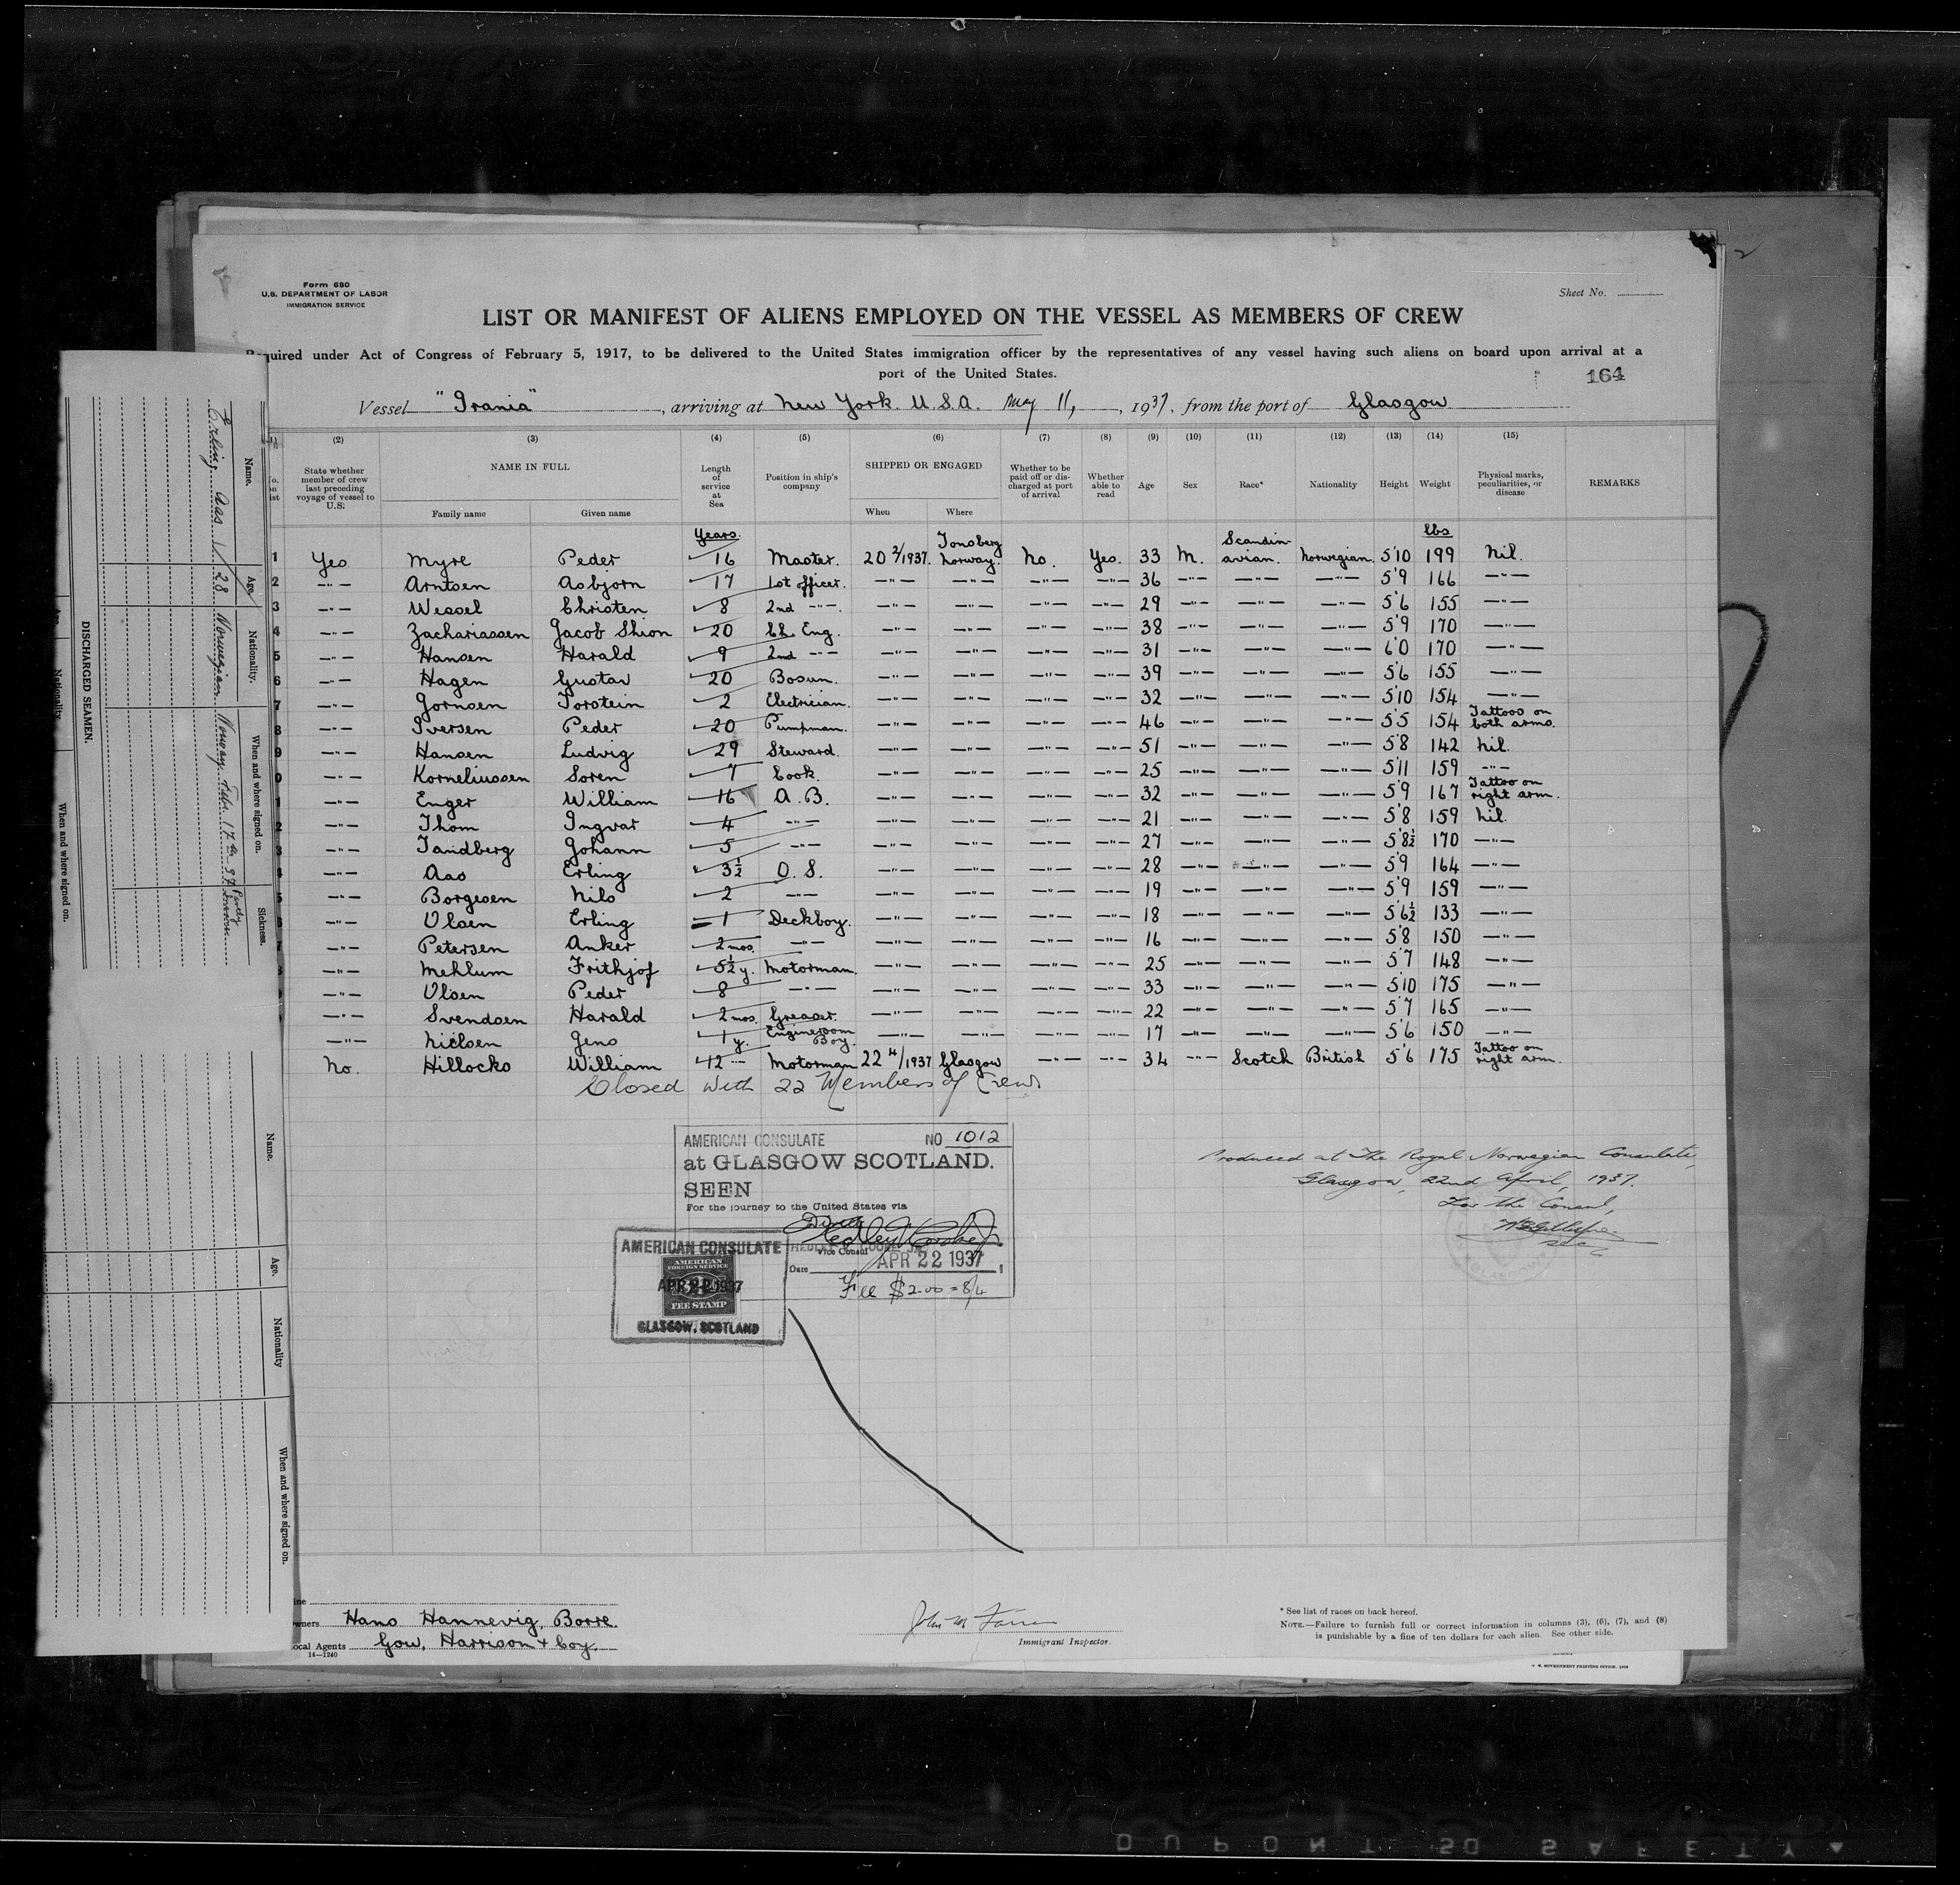 Form 680
U.S. DEPARTMENT OF LABOR
IMMIGRATION SERVICE
Sheet No.
LIST OR MANIFEST OF ALIENS EMPLOYED ON THE VESSEL AS MEMBERS OF CREW
Required under Act of Congress of February 5, 1917, to be delivered to the United States immigration officer by the representatives of any vessel having such aliens on board upon arrival at a
port of the United States.
164
Vessel "Irania", arriving at New York. U.S.A. May 11, 1937, from the port of Glasgow
(2) (3) (4) (5) (6) (7) (8) (9) (10) (11) (12) (13) (14) (15)
State whether member of crew last preceding voyage of vessel to U.S. NAME IN FULL Family name Given name Length of service at Sea Position in ship's company SHIPPED OR ENGAGED When Where Whether to be paid off or discharged at port of arrival Whether able to read Age Sex Race* Nationality Height Weight Physical marks, peculiarities, or disease REMARKS
Years. lbs
1 Yes Myre Peder 16 Master. 20 2/1937. Tonsberg Norway. No. Yes. 33 M. Scandinavian. Norwegian. 5'10 199 Nil.
2 —"— Arntsen Asbjorn 17 1st officer. —"— —"— —"— —"— 36 —"— —"— —"— 5'9 166 —"—
3 —"— Wessel Christen 8 2nd —"—. —"— —"— —"— —"— 29 —"— —"— —"— 5'6 155 —"—
4 —"— Zachariassen Jacob Shion 20 Ch. Eng. —"— —"— —"— —"— 38 —"— —"— —"— 5'9 170 —"—
5 —"— Hansen Harald 9 2nd —"— —"— —"— —"— —"— 31 —"— —"— —"— 6'0 170 —"—
6 —"— Hagen Gustav 20 Bosun. —"— —"— —"— —"— 39 —"— —"— —"— 5'6 155 —"—
7 —"— Jornsen Torstein 2 Electrician. —"— —"— —"— —"— 32 —"— —"— —"— 5'10 154 —"—
8 —"— Iversen Peder 20 Pumpman. —"— —"— —"— —"— 46 —"— —"— —"— 5'5 154 Tattoos on both arms.
9 —"— Hansen Ludvig 29 Steward. —"— —"— —"— —"— 51 —"— —"— —"— 5'8 142 Nil.
0 —"— Korneliussen Soren 7 Cook. —"— —"— —"— —"— 25 —"— —"— —"— 5'11 159 —"—
1 —"— Enger William 16 A.B. —"— —"— —"— —"— 32 —"— —"— —"— 5'9 167 Tattoo on right arm.
2 —"— Thom Ingvar 4 —"— —"— —"— —"— —"— 21 —"— —"— —"— 5'8 159 Nil.
3 —"— Tandberg Johann 5 —"— —"— —"— —"— —"— 27 —"— —"— —"— 5'8½ 170 —"—
—"— Aas Erling 3½ O.S. —"— —"— —"— —"— 28 —"— —"— —"— 5'9 164 —"—
5 —"— Borgesen Nils 2 —"— —"— —"— —"— —"— 19 —"— —"— —"— 5'9 159 —"—
6 —"— Olsen Erling 1 Deckboy. —"— —"— —"— —"— 18 —"— —"— —"— 5'6½ 133 —"—
7 —"— Petersen Anker 2 mos. —"— —"— —"— —"— —"— 16 —"— —"— —"— 5'8 150 —"—
—"— Mehlum Frithjof 5½ y. Motorman. —"— —"— —"— —"— 25 —"— —"— —"— 5'7 148 —"—
—"— Olsen Peder 8 —"— —"— —"— —"— —"— 33 —"— —"— —"— 5'10 175 —"—
—"— Svendsen Harald 2 mos. Greaser. —"— —"— —"— —"— 22 —"— —"— —"— 5'7 165 —"—
—"— Nielsen Jens 1 y. Engineroom Boy. —"— —"— —"— —"— 17 —"— —"— —"— 5'6 150 —"—
No. Hillocks William 12 —"— Motorman 22 4/1937 Glasgow —"— —"— 34 —"— Scotch British 5'6 175 Tattoo on right arm.
Closed with 22 Members of Crew
AMERICAN CONSULATE NO 1012
at GLASGOW SCOTLAND.
SEEN
For the journey to the United States via
Direct
Vice Consul
Date APR 22 1937
Fee $2.00 = 8/4
AMERICAN CONSULATE
AMERICAN
FOREIGN SERVICE
APR 22 1937
FEE STAMP
GLASGOW, SCOTLAND
Produced at The Royal Norwegian Consulate,
Glasgow, 22nd April, 1937.
For the Consul,
Line
Owners Hans Hannevig, Borre.
Local Agents Gow, Harrison & Coy.
14—1240
Immigrant Inspector.
* See list of races on back hereof.
NOTE.—Failure to furnish full or correct information in columns (3), (6), (7), and (8)
is punishable by a fine of ten dollars for each alien. See other side.
U. S. GOVERNMENT PRINTING OFFICE
DISCHARGED SEAMEN.
Name. Age. Nationality. When and where signed on. Sickness.
Erling Aas 28 Norwegian Norway. Febr. 17th 37
Nationality. When and where signed on.
Name. Age. Nationality When and where signed on.
DUPONT 50 SAFETY